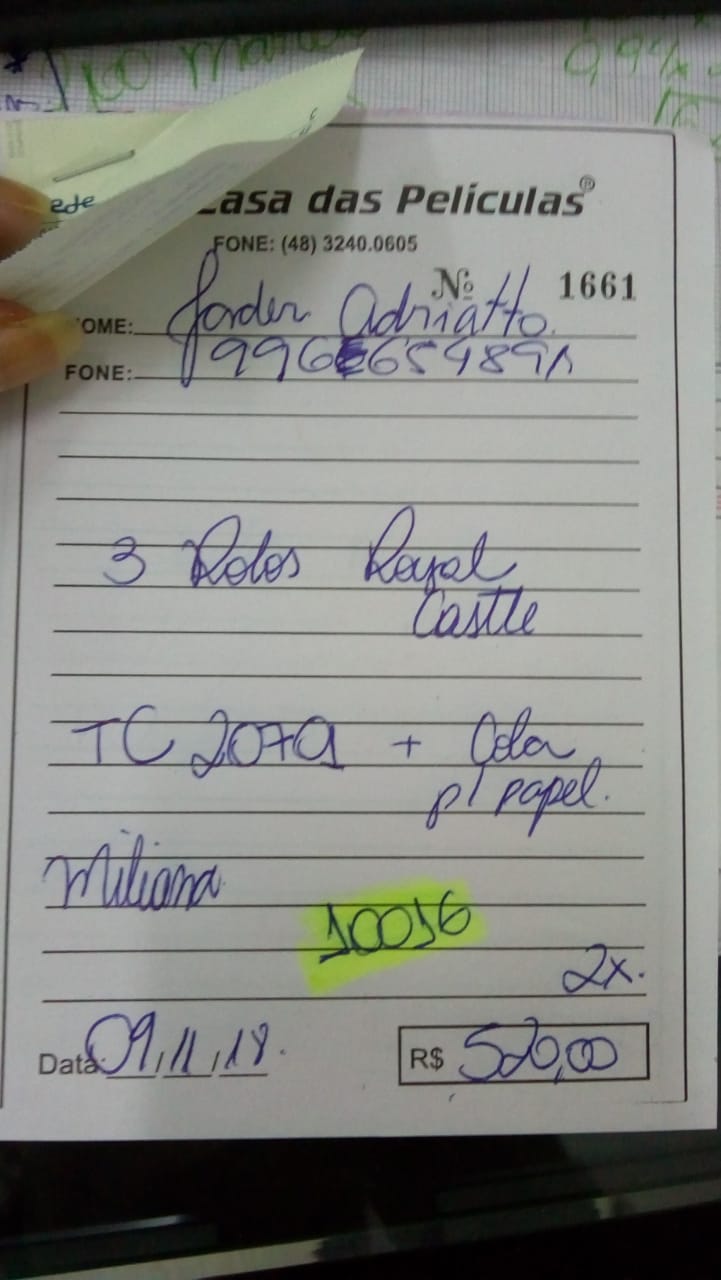 100
0,94x
ede
Casa das Películas®
FONE: (48) 3240.0605
Nº 1661
NOME: Jorder Adriatto
FONE: 996665489
3 Rolos Royal
Castle
TC 207A + Cola
p/ papel.
Miliana
10016
2x.
Data: 09/11/18.
R$ 520,00